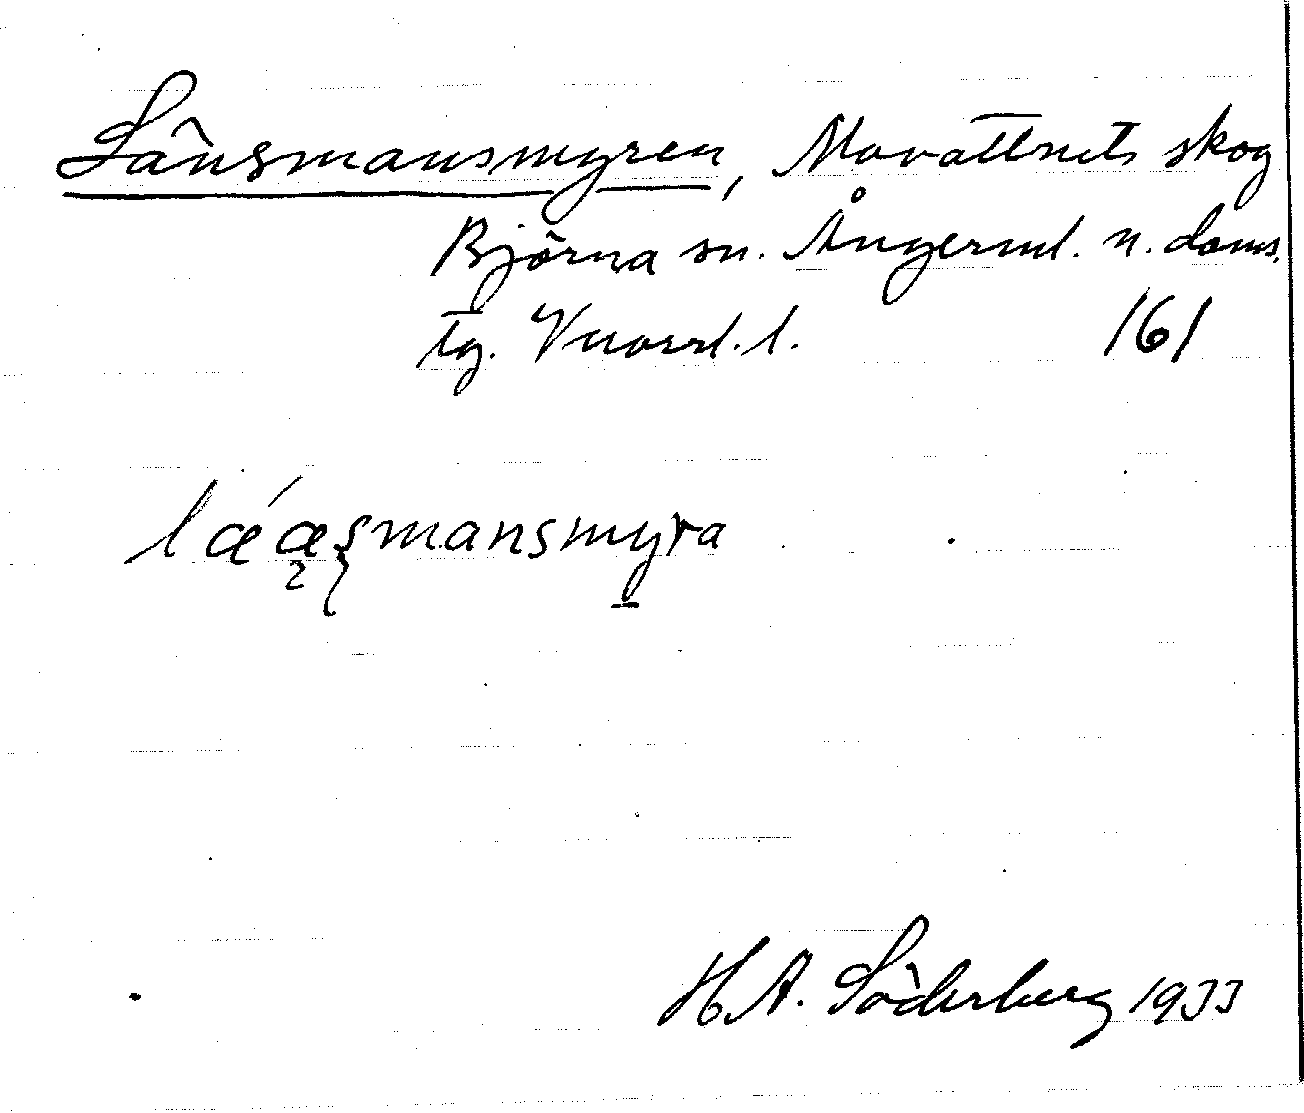 Länsmansmyren, Movattnets skog
Björna sn. Ångerml. n. doms.
tg. 161
lǽæșmansmyra
H.A. Söderberg 1933